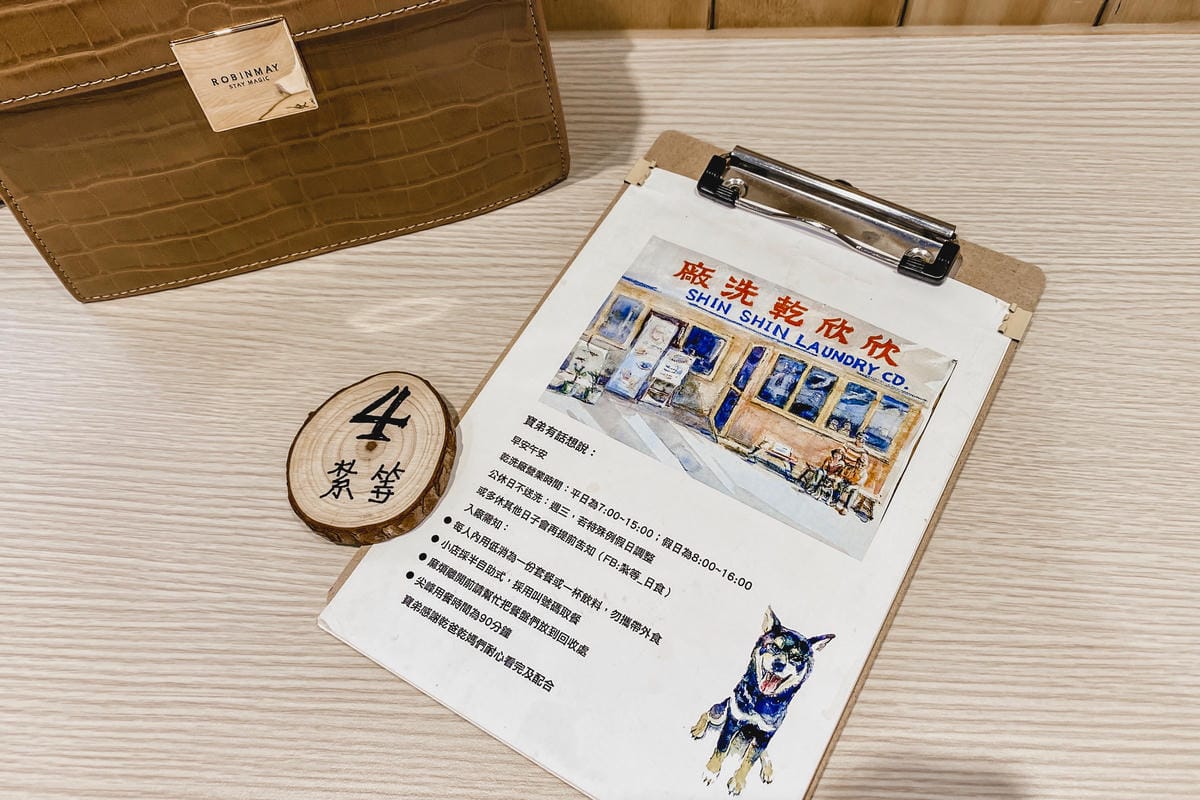 ROBINMAY
STAY MAGIC
廠洗乾欣欣
SHIN SHIN LAUNDRY CO.
4
紮等
寶弟有話想說：
早安午安
乾洗廠營業時間：平日為7:00~15:00；假日為8:00~16:00
公休日不送洗：週三；若特殊例假日調整
或多休其他日子會再提前告知（FB:紮等_日食）
入廠需知：
●每人內用低消為一份套餐或一杯飲料，勿攜帶外食
●小店採半自助式，採用叫號碼取餐
●麻煩離開前請幫忙把餐盤們放到回收處
●尖峰用餐時間為90分鐘
寶弟感謝乾爸乾媽們耐心看完及配合